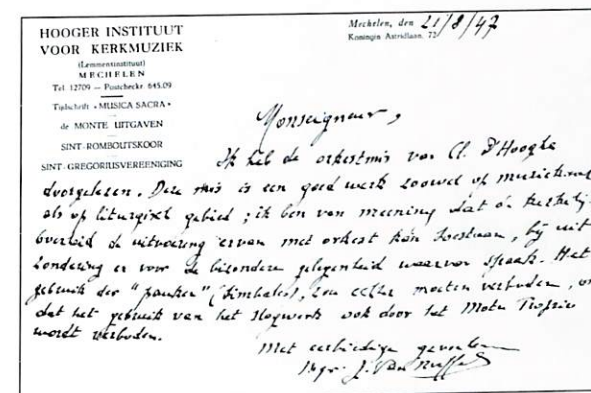 HOOGER INSTITUUT
VOOR KERKMUZIEK
(Lemmensinstituut)
MECHELEN
Tel. 12709 — Postcheckr. 645.09
Tijdschrift «MUSICA SACRA»
de MONTE UITGAVEN
SINT-ROMBOUTSKOOR
SINT-GREGORIUSVEREENIGING
Mechelen, den 21/8/47
Koningin Astridlaan, 72
Monseigneur,
Ik heb de orkestmis van Cl. D'Hooghe
doorgelezen. Deze mis is een goed werk zoowel op
als op liturgisch gebied; ik ben van meening dat de
overheid de uitvoering ervan met orkest kan toestaan, bij uit-
zondering en voor de bizondere gelegenheid waarvan spraak. Het
gebruik der "pauken" (Timbales), zou echter moeten verboden, om
dat het gebruik van het slagwerk ook door het Motu Proprio
wordt verboden.
Met eerbiedige gevoelens
Mgr. J. Van Nuffel